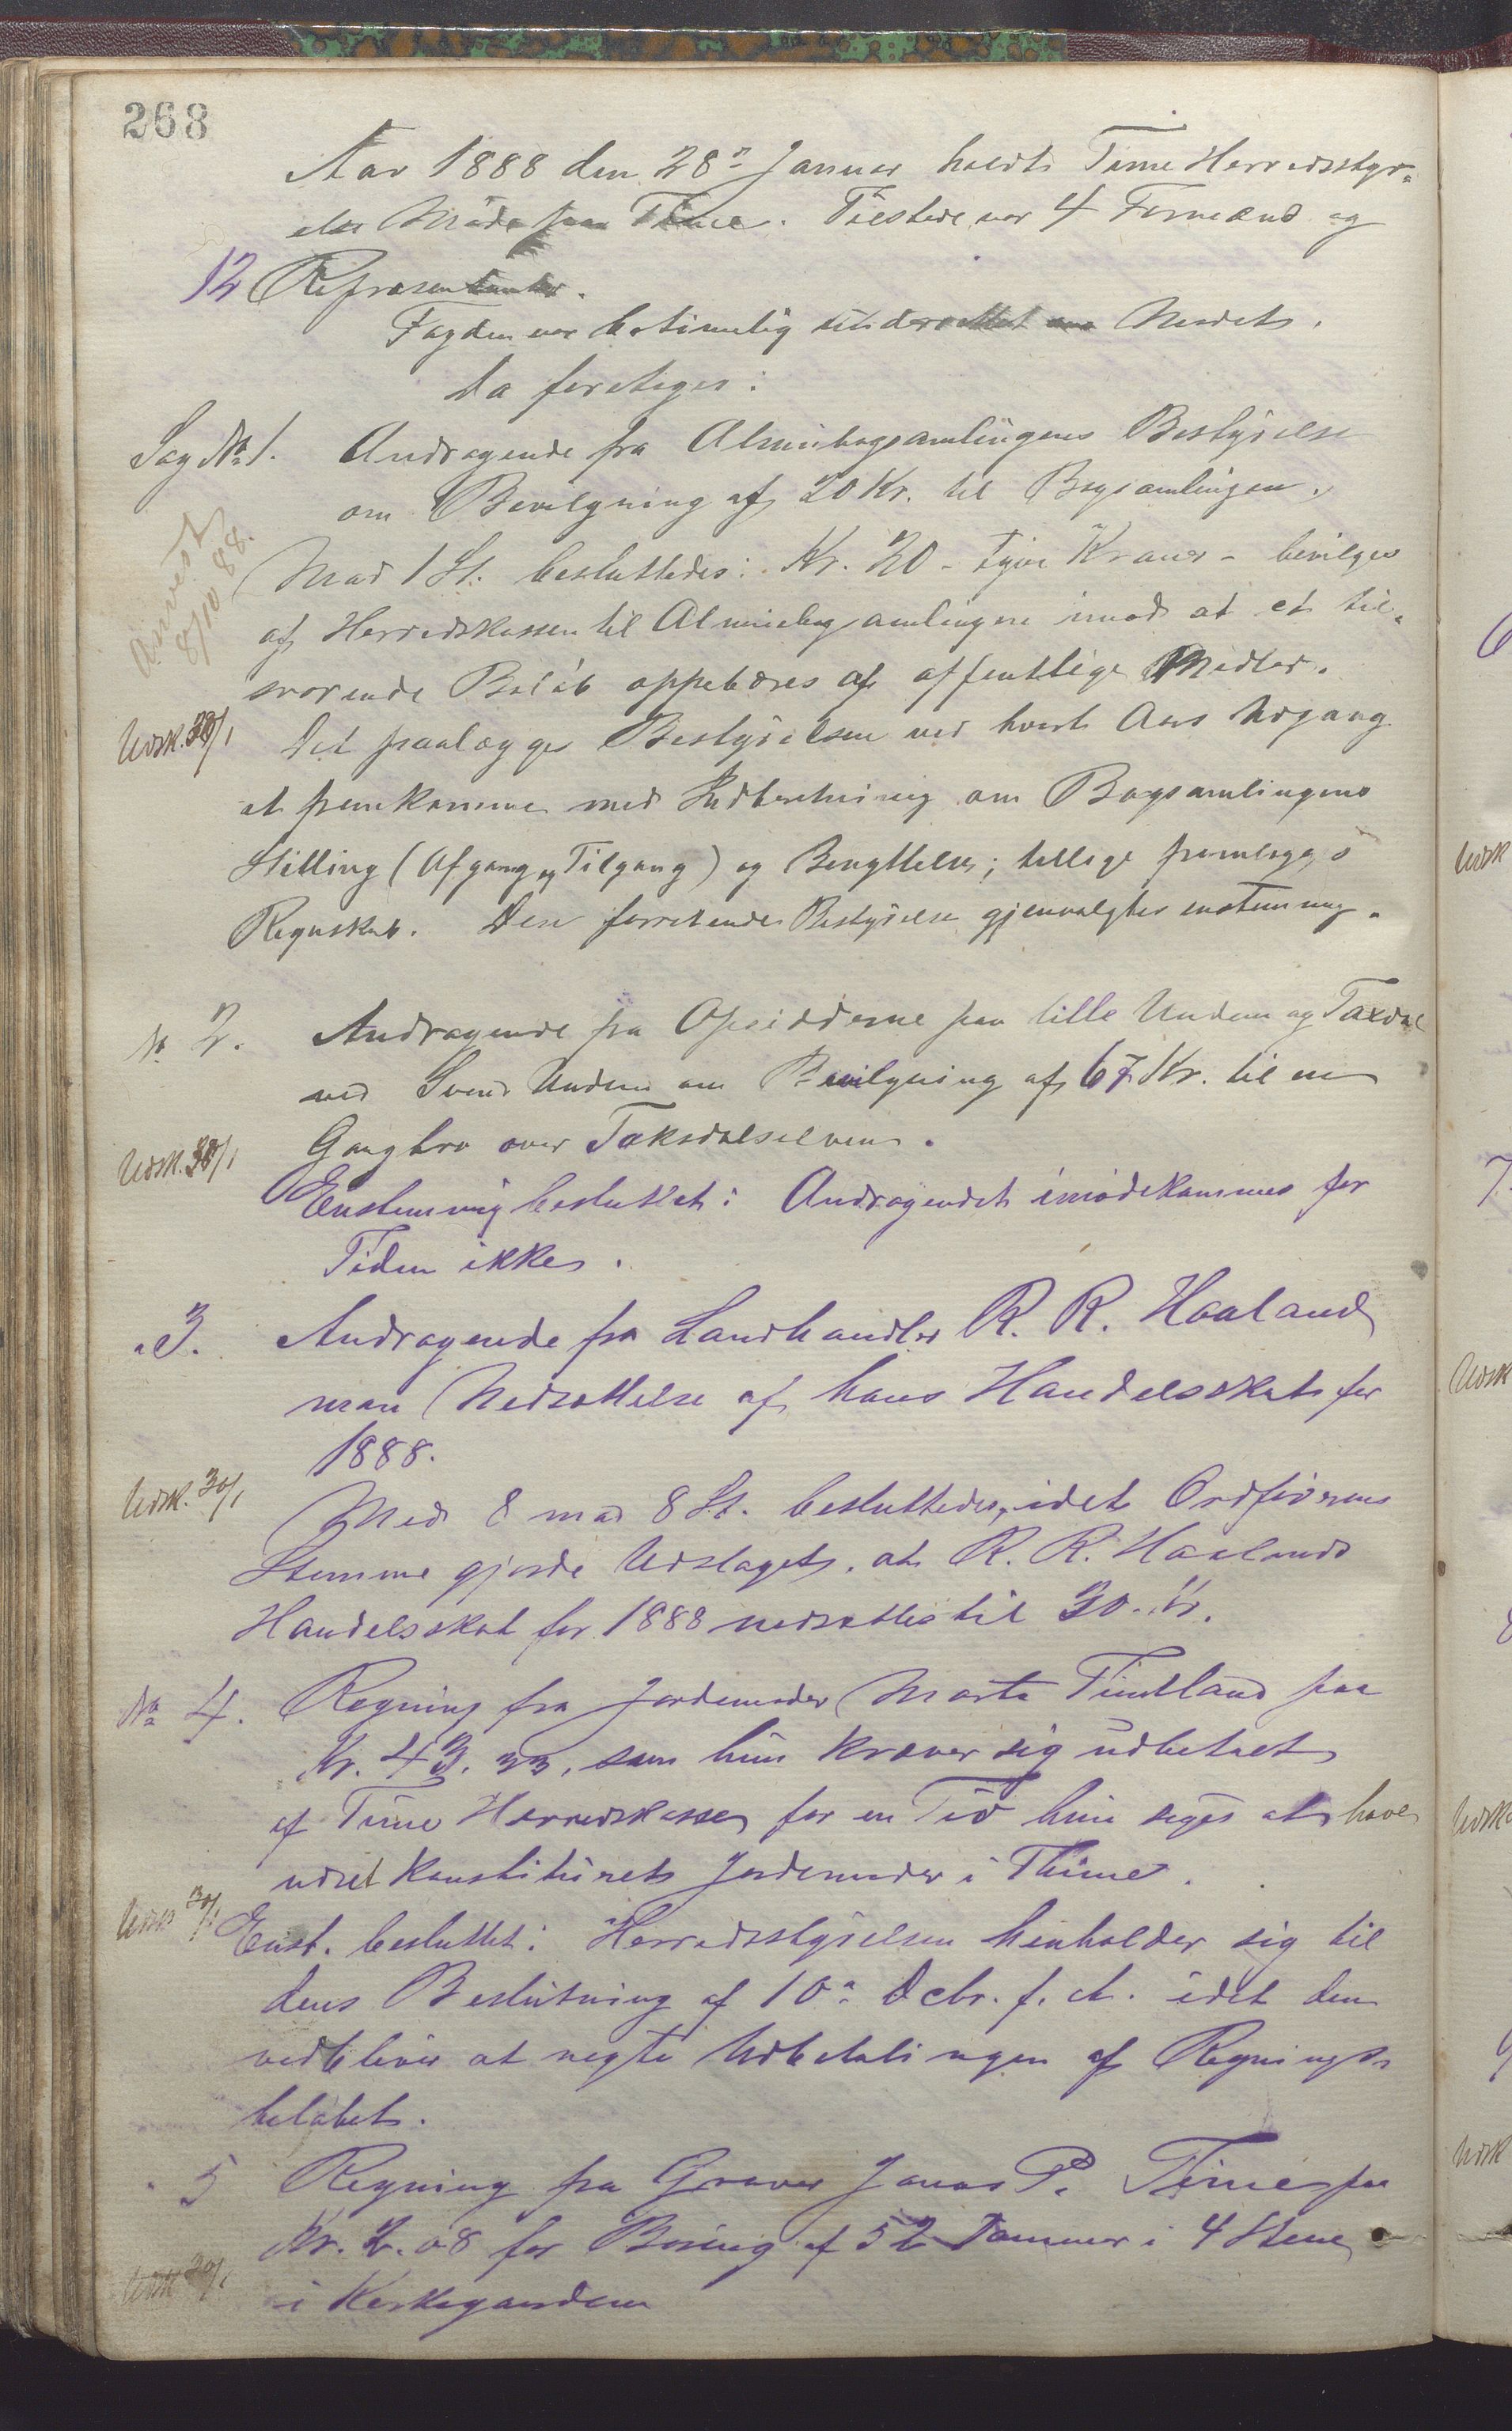 268
Aar 1888 den 28n Januar holdt Time Herredsstyr-
else Møde paa Time. Tilstede var 4 Formænd og
12 Repræsentanter.
Fogden var betimelig underrettet om Mødet.
Da foretoges:
Sag No 1. Andragende fra Almubogsamlingens Bestyrelse
om Bevilgning af 20 Kr. til Bogsamlingen.
Anvist
8/10 88.
Mod 1 St. besluttedes: Kr. 20 - tyve Kroner - bevilges
af Herredskassen til Almuebogsamlingen imod at et til-
svarende Beløb oppebæres af offentlige Midler.
Udsk. 30/1
Det paalægges Bestyrelsen ved hvert Aars Udgang
at fremkomme med Indberetning om Bogsamlingens
Stilling (Afgang og Tilgang) og Benyttelse; tillige fremlægges
Regnskab. Den forretende Bestyrelse gjenvalgtes enstemmig.
No 2. Andragende fra Opsidderne paa lille Undem og Taxdal
ved Svend Undem om Bevilgning af 67 Kr. til en
Gangbro over Taksdalselven.
Udsk. 30/1
Enstemmig besluttet: Andragendet imødekommes for
Tiden ikke.
" 3. Andragende fra Landhandler R. R. Haaland
om Nedsættelse af hans Handelsskat for
1888.
Udsk. 30/1
Med 8 mod 8 St. besluttedes, idet Ordførerens
Stemme gjorde Udslaget, at R. R. Haalands
Handelsskat for 1888 nedsættes til 30. Kr.
No 4. Regning fra Jordemoder Marta Timtland paa
Kr. 43.33, som hun kræver sig udbetalt
af Time Herredskasse for en Tid hun siges at have
været konstitueret Jordemoder i Thime.
Udsk 30/1
Enst. besluttet: Herredsstyrelsen henholder sig til
dens Beslutning af 10n Decbr. f. A. idet den
vedbliver at negte Udbetalingen af Regnings-
beløbet.
" 5 Regning fra Graver Jonas P. Time paa
Kr. 2.08 for Boring af 52 Tommer i 4 Stene
Udsk 30/1
i Kirkegaarden